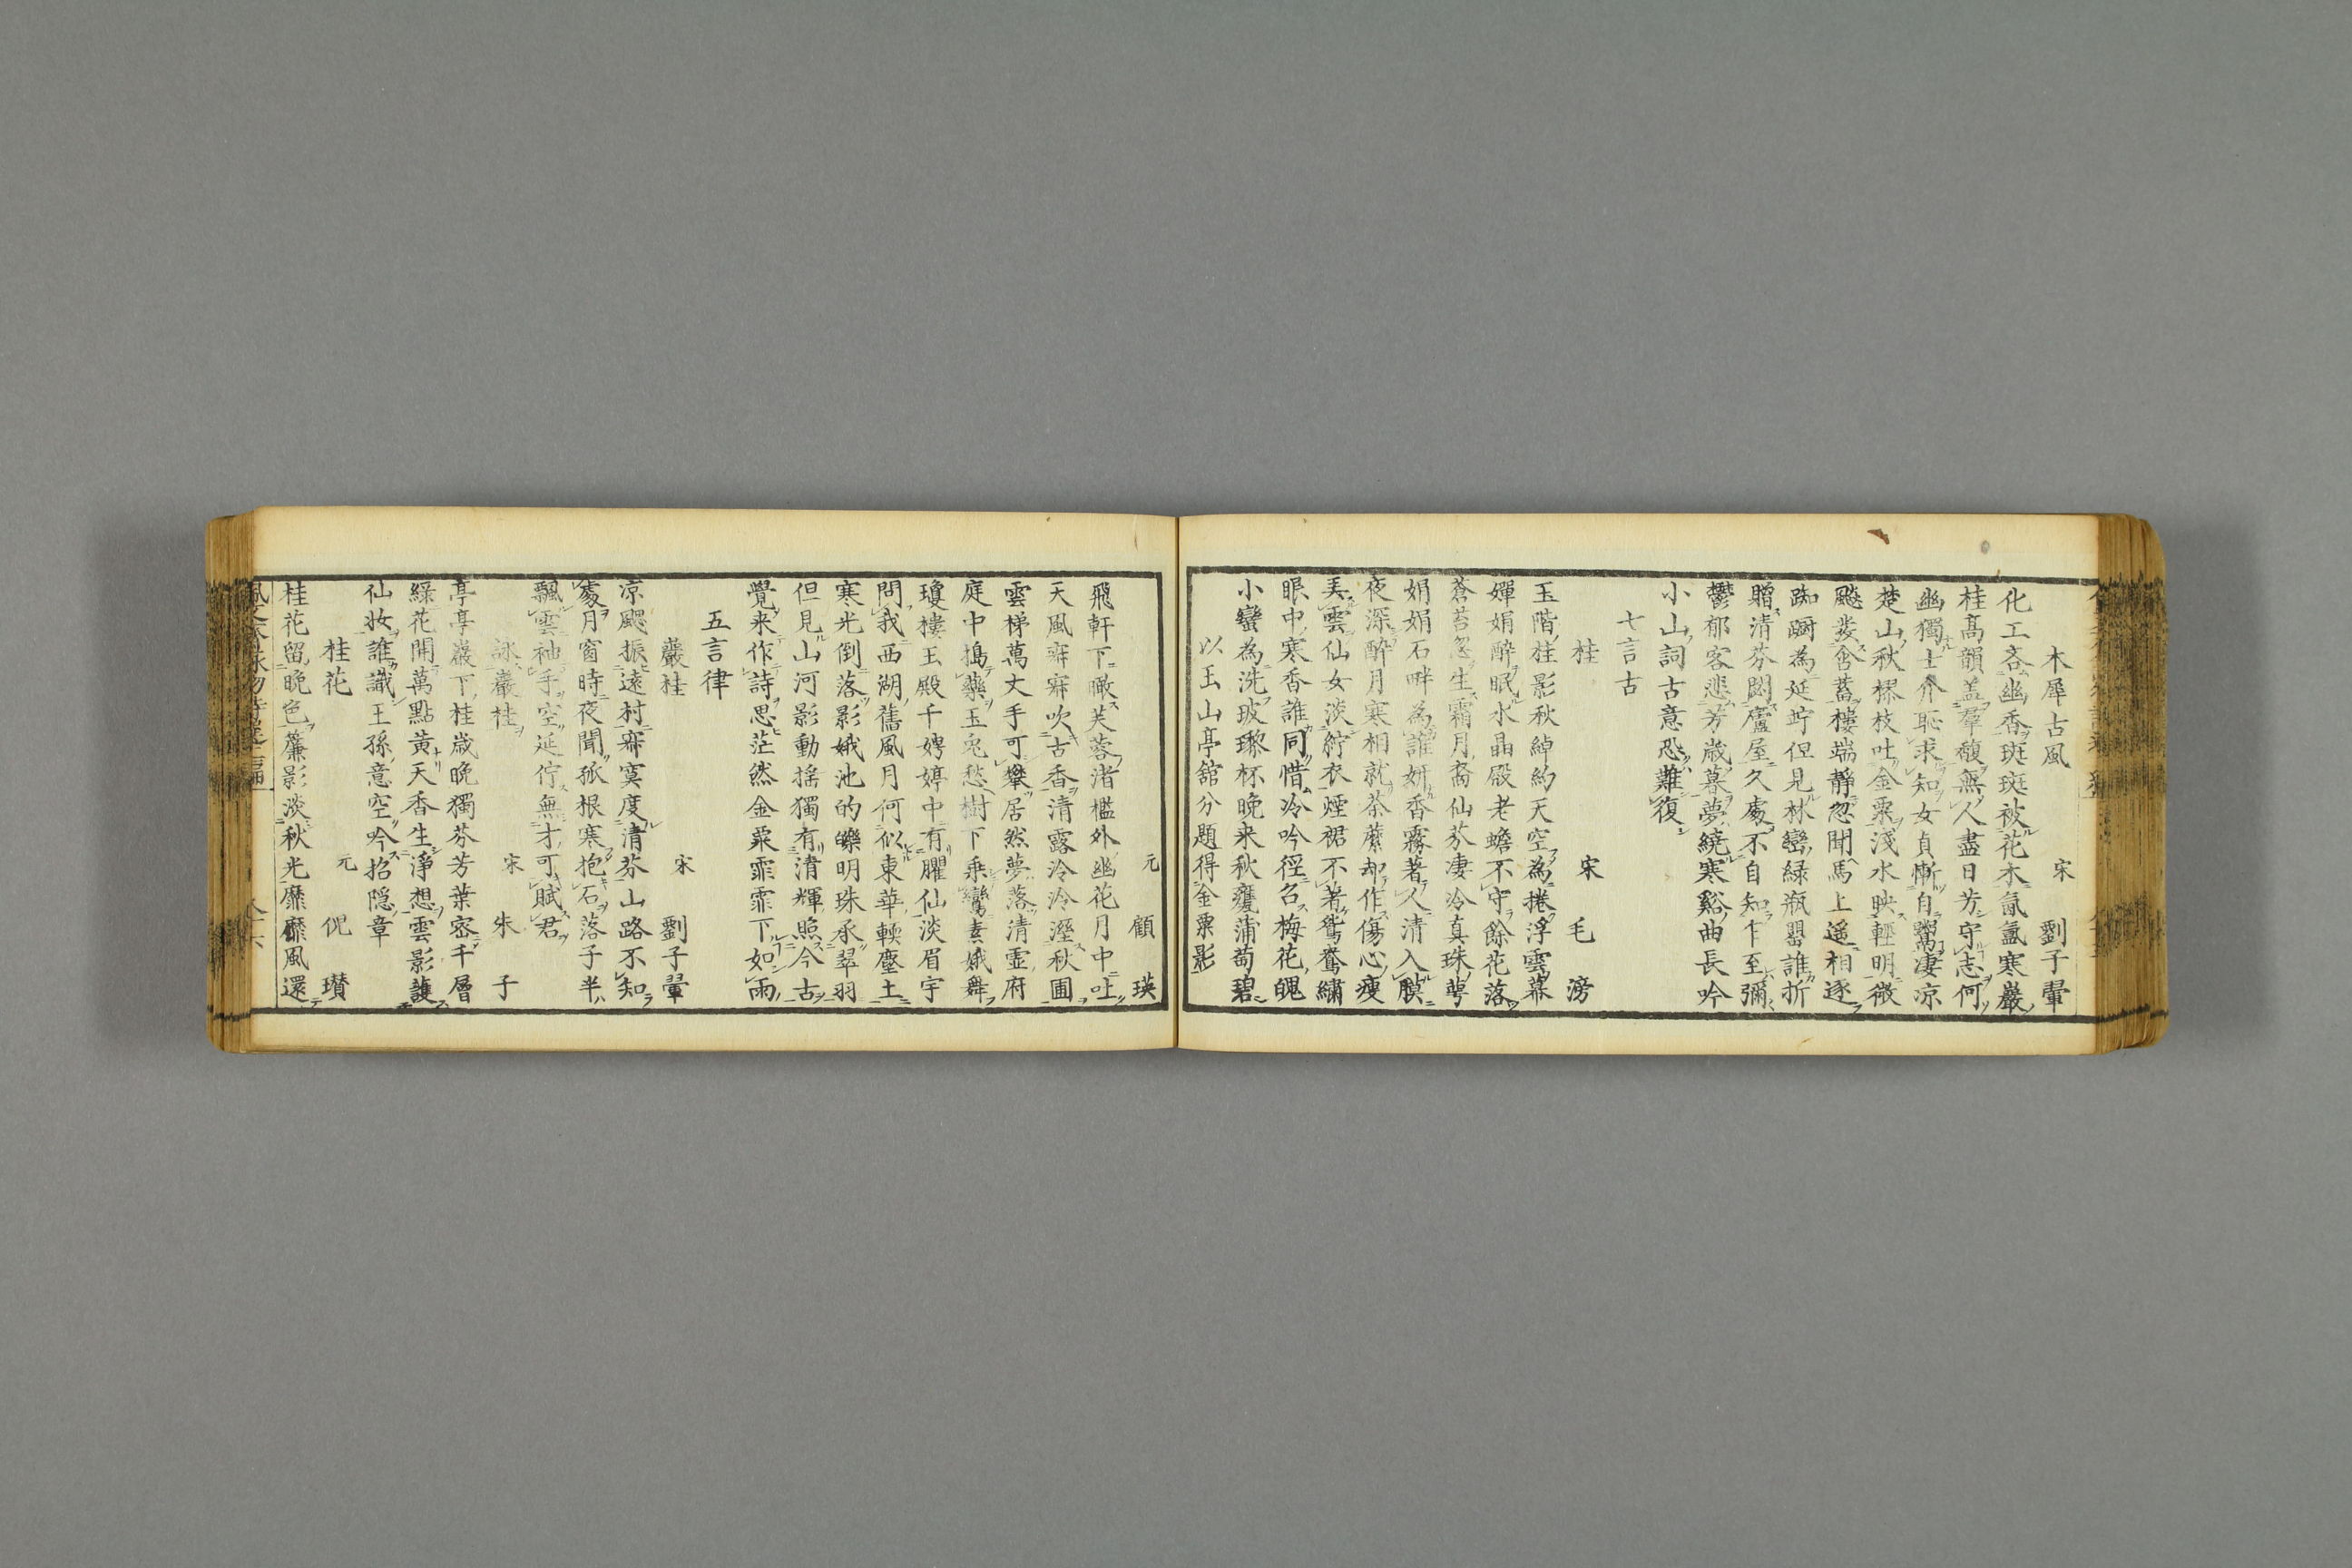 木犀古風 宋 劉子翬
化工呑幽香斑斑被花木氤氳寒巖
桂髙韻盖羣馥無人盡日芳守志何
幽獨士介恥求知女貞慚自鬻凄凉
楚山秋樛枝吐金粟淺水映輕明微
飈發舎蓄樓端静忽聞馬上遥相逐
踟蹰為延竚但見林巒緑瓶罌誰折
贈清芬閟廬屋久處不自知乍至彌
鬱郁客悲芳歳暮夢繞寒谿曲長吟
小山詞古意恐難復
七言古
桂 宋 毛滂
玉階桂影秋綽約天空為捲浮雲幕
嬋娟醉眠水晶殿老蟾不守餘花落
蒼苔忽生霜月裔仙芬凄冷真珠蕚
娟娟石畔為誰妍香霧著人清入膜
夜深醉月寒相就荼蘼却作傷心瘦
弄雲仙女淡紵衣煙裙不著鴛鴦繍
眼中寒香誰同惜冷吟徑召梅花魄
小蠻為洗玻瓈杯晩来秋甕蒲萄碧
以玉山亭舘分題得金粟影
元 顧瑛
飛軒下瞰芙蓉渚檻外幽花月中吐
天風寂寂吹古香清露泠泠溼秋圃
雲梯萬丈手可攀居然夢落清虚府
庭中搗藥玉兎愁樹下乗鸞素娥舞
瓊樓玉殿千娉婷中有臞仙淡眉宇
問我西湖舊風月何似東華輭塵土
寒光倒落影娥池的皪明珠承翠羽
但見山河影動摇獨有清輝照今古
覺来作詩思茫然金粟霏霏下如雨
五言律
巖桂 宋 劉子翬
凉飈振遠村寂寞度清芬山路不知
處月窗時夜聞孤根寒抱石落子半
飄雲袖手空延佇無才可賦君
詠巖桂 宋 朱子
亭亭巖下桂歳晩獨芬芳葉宻千層
緑花開萬點黄天香生淨想雲影護
仙妝誰識王孫意空吟招隠章
桂花 元 倪瓚
桂花留晩色簾影淡秋光靡靡風還